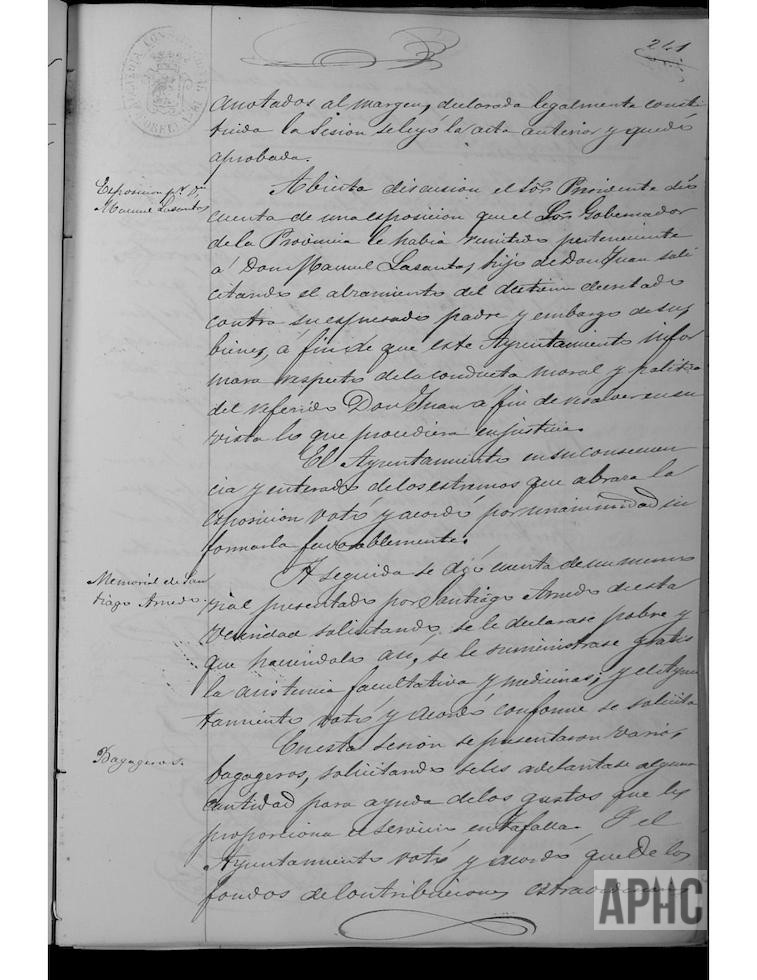 241
anotados al margen, declarada legalmente consti
tuida la Sesion se leyó la acta anterior y quedó
aprobada.
Exposicion
Manuel Lasanta
Abierta discusion el Sor. Presidente dió
cuenta de una exposicion que el Sor. Gobernador
de la Provincia le habia remitido perteneciente
á Don Manuel Lasanta, hijo de Don Juan soli
citando el alzamiento del destierro decretado
contra su espresado padre y embargo de sus
bienes, á fin de que este Ayuntamiento infor
mara respecto de la conducta moral y politica
del referido Don Juan a fin de resolver en su
vista lo que procediera en justicia.
El Ayuntamiento en su consecuen
cia y enterado de los estremos que abraza la
exposicion votó y acordó por unanimidad in
formarla favorablemente.
Memorial de San
tiago Arnedo.
A seguida se dió cuenta de un memo
rial presentado por Santiago Arnedo de esta
vecindad solicitando se le declarase pobre y
que haciendolo asi, se le suministrase gratis
la asistencia facultativa y medicinas; y el Ayun
tamiento votó y acordó conforme se solicita
Bagageros.
En esta sesión se presentaron varios
bagageros, solicitando se les adelantase alguna
cantidad para ayuda de los gastos que les
proporciona el servicio en Tafalla. Y el
Ayuntamiento votó y acordó que de los
fondos de Contribuciones
APHC